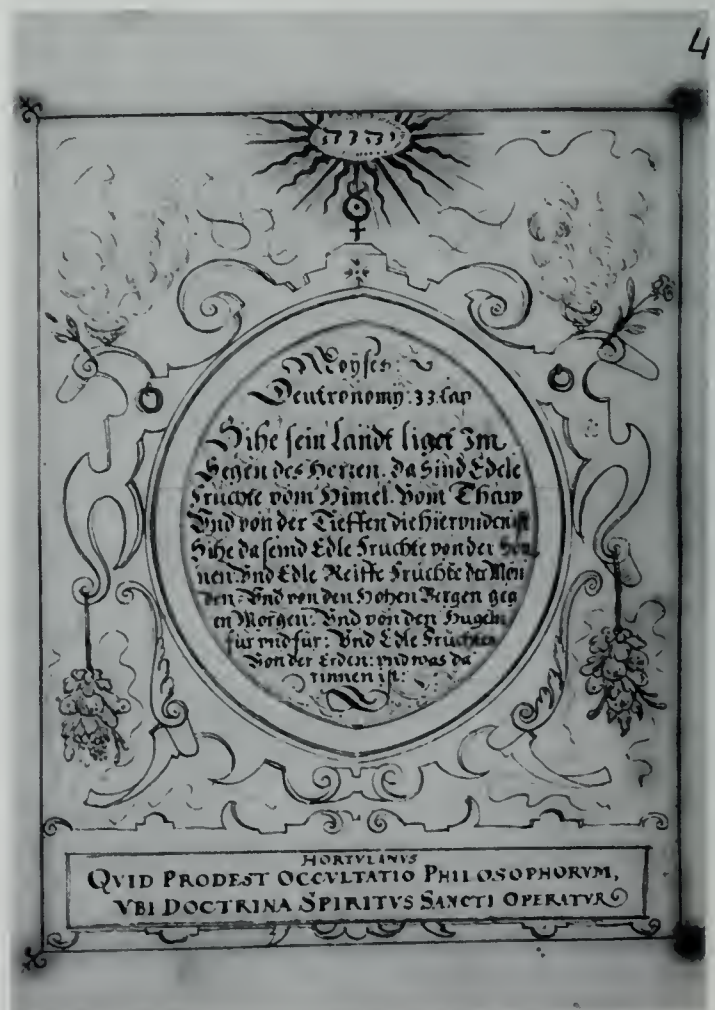 4
יהוה
Moÿses:
Deutronomy: 33. Cap
Sihe sein Landt liget Im
Segen des Herren. da Sind Edele
Fruchte vom Himel. Vom Thaw
Vnd von der Tieffen die hiervnden ist
Sihe da seind Edle Fruchte von der Son„
nen: Vnd Edle Reiffe Fruchte der Mon
den: Vnd von den Hohen Bergen geg
en Morgen: Vnd von den Hugeln
für vnd für: Vnd Edle Fruchten
Von der Erden: vnd was da
rinnen ist:
HORTVLANVS
QVID PRODEST OCCVLTATIO PHILOSOPHORVM,
VBI DOCTRINA SPIRITVS SANCTI OPERATVR